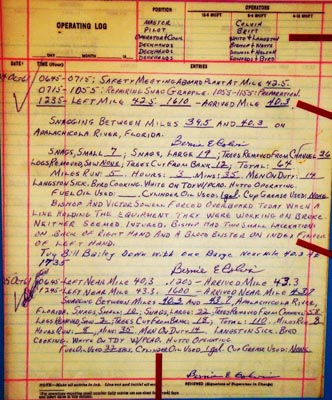 OPERATING LOG
POSITION
OPERATORS
MASTER
COLVIN
PILOT
BRITT
OPERATOR & COOK
WHITE & LANGSTON
DECKHANDS
BISHOP &
DECKHANDS
DECKHANDS
EDWARDS & BIRD
DATE
TIME
ENTRIES
0645-0715: SAFETY MEETING ABOARD PLANT AT MILE 42.5.
0715-1055: REPAIRING SNAG GRAPPLE. 1055-1255: PREPARATION.
1235-LEFT MILE 42.5 1610-ARRIVED MILE 40.3
SNAGGING BETWEEN MILES 39.5 AND 40.3 ON
APALACHICOLA RIVER, FLORIDA.
Bernie E Colvin
SNAGS, SMALL 7; SNAGS, LARGE 19; TREES REMOVED FROM CHANNEL 36
LOGS REMOVED, SAW NONE; TREES CUT FROM BANK 12; TOTAL: 64
MILES RUN: 5 HOURS: 3 MINS: 35 MEN ON DUTY: 14
LANGSTON SICK, BIRD COOKING, WHITE ON TDY W/PCAD, HUTTO OPERATING.
FUEL OIL USED: CYLINDER OIL USED: 1 gal CUP GREASE USED: NONE
BISHOP AND VICTOR SOWELL FORCED OVERBOARD TODAY WHEN A
LINE HOLDING THE EQUIPMENT THEY WERE WORKING ON BROKE
NEITHER SEEMED INJURED. BISHOP HAD TWO SMALL LACERATIONS
ON BACK OF RIGHT HAND AND A BLOOD BLISTER ON INDEX FINGER
OF LEFT HAND.
Tug Bill Bailey Down with one Barge Near mile 40.3 at
1735
Bernie E Colvin
0640-LEFT NEAR MILE 40.3 1205-ARRIVED MILE 43.3
1245-LEFT NEAR MILE 43.3 1600-ARRIVED MILE 43.7
SNAGGING BETWEEN MILES 40.3 AND 43.7, APALACHICOLA RIVER,
FLORIDA. SNAGS, SMALL: 10 SNAGS, LARGE: 22 TREES REMOVED FROM CHANNEL: 58
LOGS REMOVED, SAW: 2 TREES CUT FROM BANK: 18 TOTAL: 110 MILES RUN: 8
HOURS RUN: 8 MINS: 30 MEN ON DUTY: 14 LANGSTON SICK. BIRD
COOKING. WHITE ON TDY W/PCAD. HUTTO OPERATING
FUEL OIL USED: CYLINDER OIL USED: 1 gal. CUP GREASE USED: NONE
Bernie E Colvin